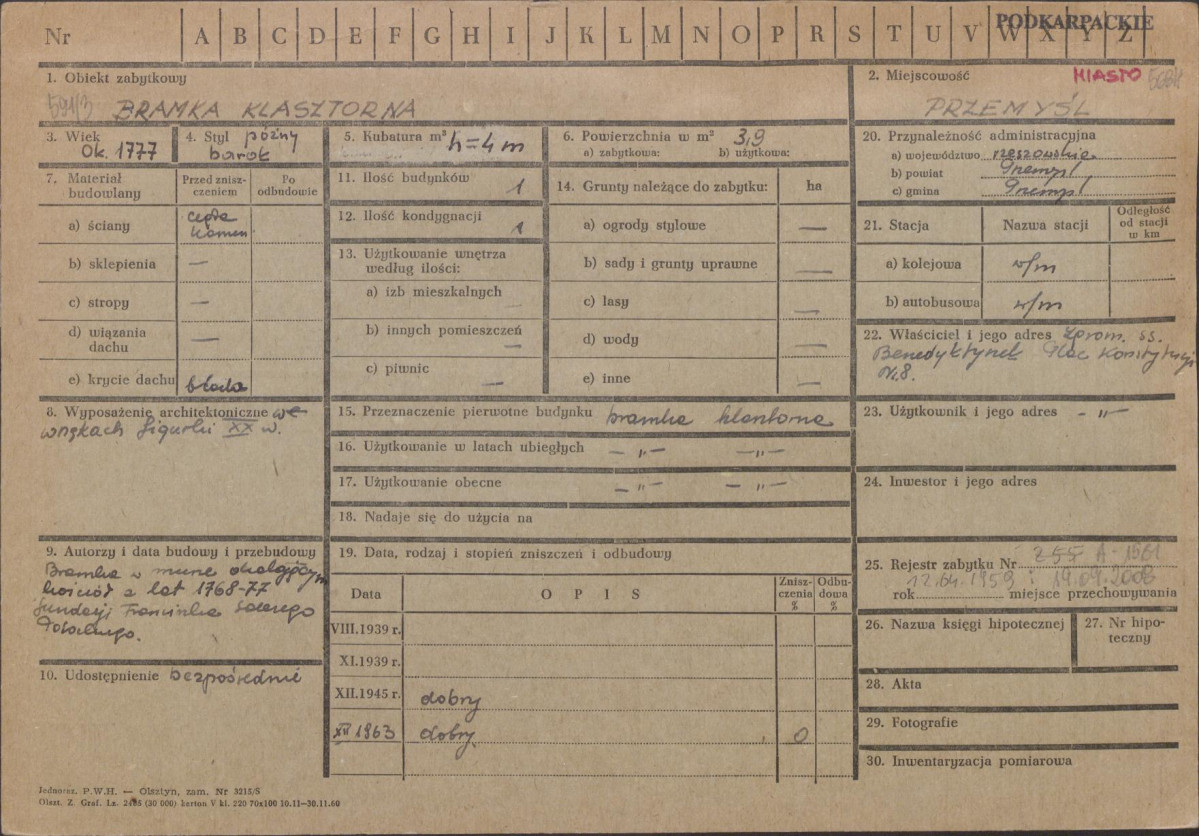 Nr A B C D E F G H I J K L M N O P R S T U V W X Y Z
PODKARPACKIE
1. Obiekt zabytkowy
591/3 BRAMKA KLASZTORNA
2. Miejscowość MIASTO
PRZEMYŚL
3. Wiek
Ok. 1777
4. Styl późny
barok
5. Kubatura m³ h=4m
6. Powierzchnia w m² 3,9
a) zabytkowa: b) użytkowa:
7. Materiał
budowlany
Przed znisz-
czeniem
Po
odbudowie
a) ściany cegła
kamień
b) sklepienia —
c) stropy —
d) wiązania
dachu —
e) krycie dachu blacha
8. Wyposażenie architektoniczne we
wnękach figurki XX w.
9. Autorzy i data budowy i przebudowy
Bramka w murze okalającym
kościół z lat 1768-77
fundacji Franciszka Salezego
Potockiego.
10. Udostępnienie bezpośrednie
11. Ilość budynków 1
12. Ilość kondygnacji 1
13. Użytkowanie wnętrza
według ilości:
a) izb mieszkalnych
b) innych pomieszczeń —
c) piwnic —
14. Grunty należące do zabytku: ha
a) ogrody stylowe —
b) sady i grunty uprawne —
c) lasy —
d) wody —
e) inne —
15. Przeznaczenie pierwotne budynku bramka klasztorna
16. Użytkowanie w latach ubiegłych — „ — — „ —
17. Użytkowanie obecne — „ — — „ —
18. Nadaje się do użycia na
19. Data, rodzaj i stopień zniszczeń i odbudowy
Data O P I S Znisz-
czenia
% Odbu-
dowa
%
VIII.1939 r.
XI.1939 r.
XII.1945 r. dobry
XII 1963 dobry 0
20. Przynależność administracyjna
a) województwo rzeszowskie
b) powiat Przemyśl
c) gmina Przemyśl
21. Stacja Nazwa stacji Odległość
od stacji
w km
a) kolejowa w/m
b) autobusowa w/m
22. Właściciel i jego adres Zgrom. SS.
Benedyktynek Plac Konstytucji
Nr. 8.
23. Użytkownik i jego adres — „ —
24. Inwestor i jego adres
25. Rejestr zabytku Nr 255 A-1561
12.04.1959 i 14.04.2008
rok miejsce przechowywania
26. Nazwa księgi hipotecznej
27. Nr hipo-
teczny
28. Akta
29. Fotografie
30. Inwentaryzacja pomiarowa
Jednoraz. P.W.H. — Olsztyn, zam. Nr 3215/S
Olszt. Z. Graf. Lz. 2485 (30 000) karton V kl. 220 70x100 10.11—30.11.60